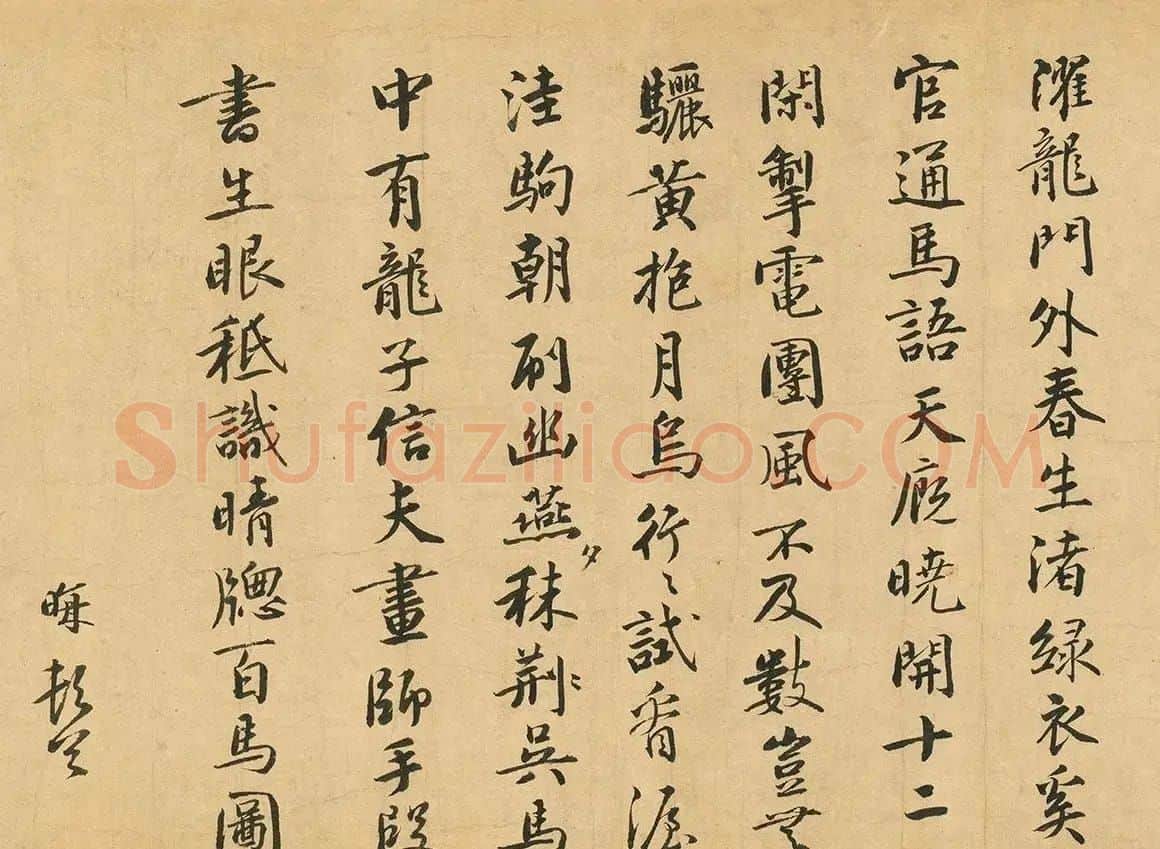 濯龍門外春生渚綠衣奚
官通馬語天廄曉開十二
閑掣電團風不及數豈無
驪黃抱月烏行〻試看渥
洼駒朝刷幽燕夕秣荊〻吳馬
中有龍子信夫畫師手段
書生眼秪識晴牕百馬圖
晦
Shufaziliao.COM